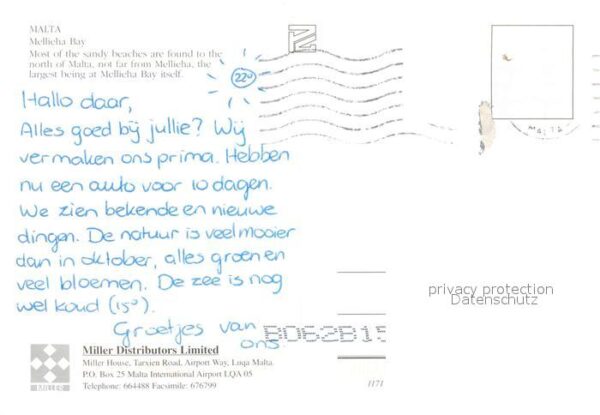 MALTA
Mellieha Bay
Most of the sandy beaches are found to the
north of Malta, not far from Mellieha, the
largest being at Mellieha Bay itself.
22°
Hallo daar,
Alles goed bij jullie? Wij
vermaken ons prima. Hebben
nu een auto voor 10 dagen.
We zien bekende en nieuwe
dingen. De natuur is veel mooier
dan in oktober, alles groen en
veel bloemen. De zee is nog
wel koud (15°).
Groetjes van
ons
B062B15
privacy protection
Datenschutz
Miller Distributors Limited
Miller House, Tarxien Road, Airport Way, Luqa Malta.
P.O. Box 25 Malta International Airport LQA 05
Telephone: 664488 Facsimile: 676799
MILLER
1171